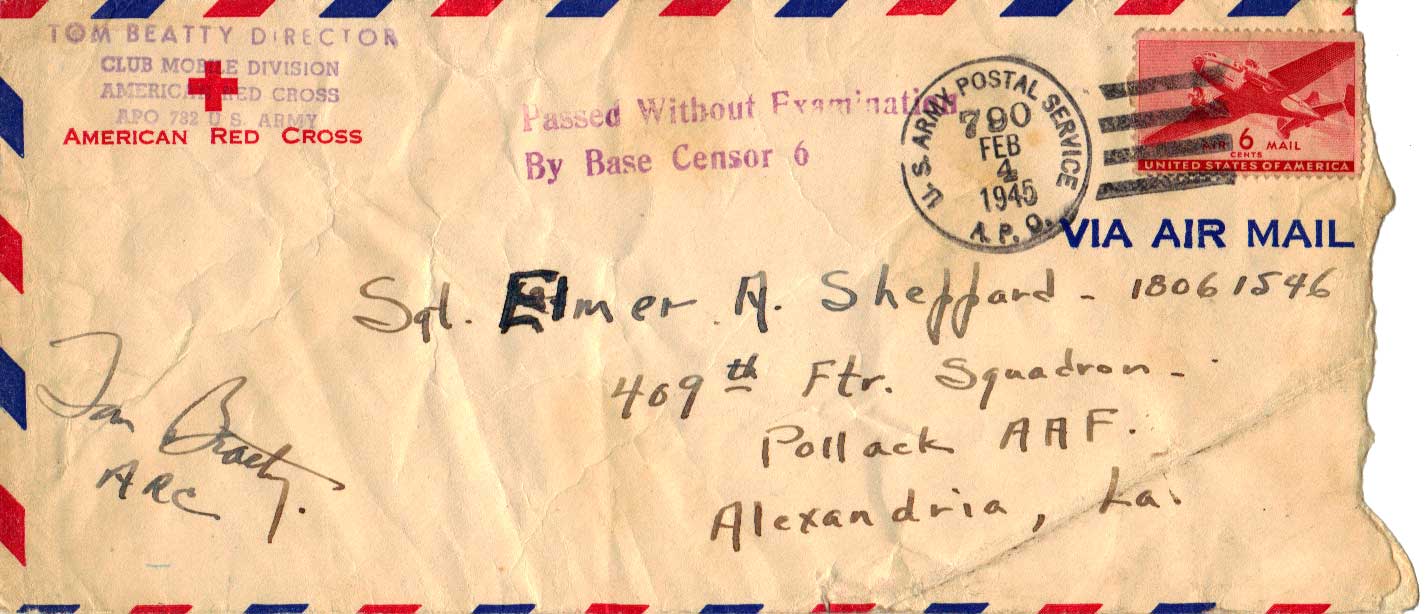 TOM BEATTY DIRECTOR
CLUB MOBILE DIVISION
AMERICAN RED CROSS
APO 782 U S. ARMY
AMERICAN RED CROSS
Passed Without Examination
By Base Censor 6
U.S. ARMY POSTAL SERVICE
790
FEB
4
1945
A.P.O.
AIR 6 MAIL
CENTS
UNITED STATES OF AMERICA
VIA AIR MAIL
Sgt. Elmer A. Sheppard - 18061546
409th Ftr. Squadron -
Pollack AAF.
Alexandria, La.
Tom Beatty.
ARC